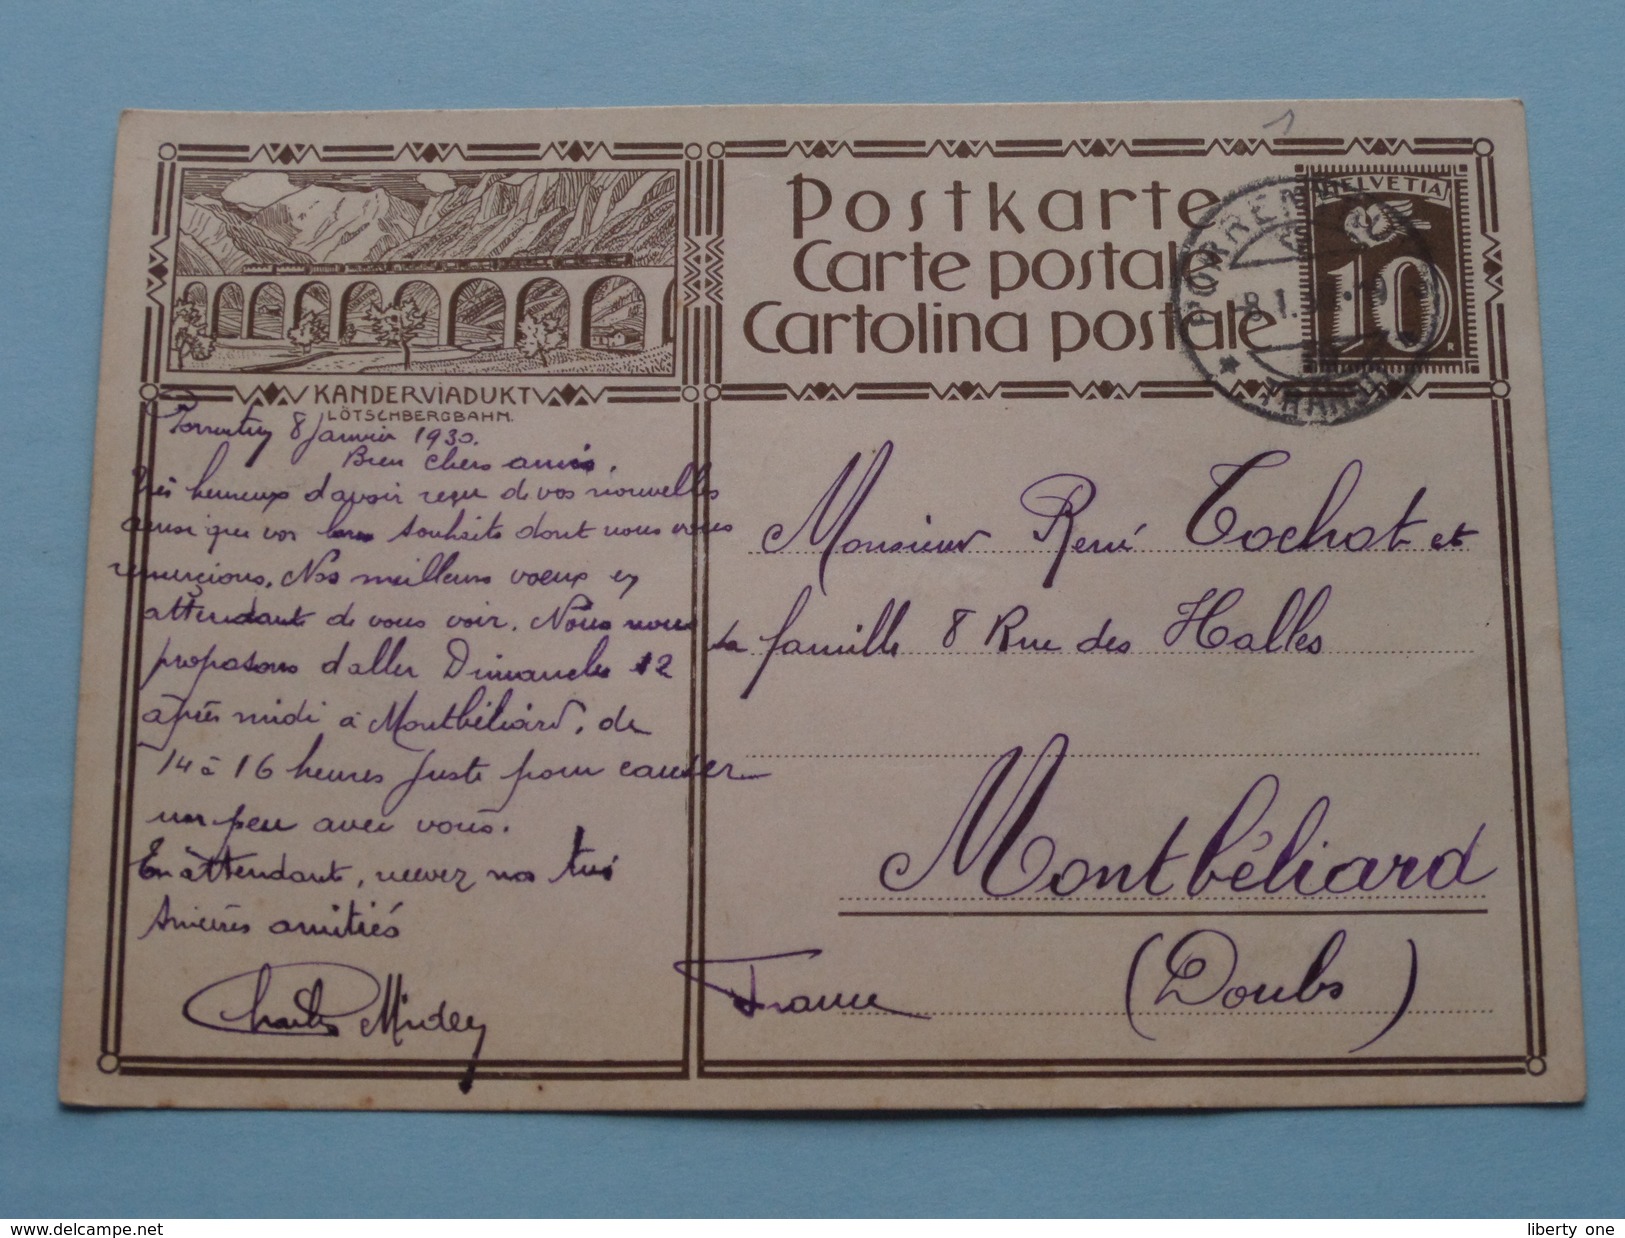 Postkarte
Carte postale
Cartolina postale
HELVETIA
10
PORREN
TRANSIT
KANDERVIADUKT
LÖTSCHBERGBAHN.
Porrentruy 8 Janvier 1930.
Bien chers amis.
Très heureux d'avoir reçu de vos nouvelles
ainsi que vos bons souhaits dont nous vous
remerçions. Nos meilleurs voeux en
attendant de vous voir. Nous nous
proposons d'aller Dimanche 12
après midi à Montbéliard, de
14 à 16 heures juste pour causer
un peu avec vous.
En attendant, recevez nos très
sincères amitiés
Charles Midey
Monsieur René Tochot et
sa famille 8 Rue des Halles
Montbéliard
(Doubs)
France
www.delcampe.net
liberty one